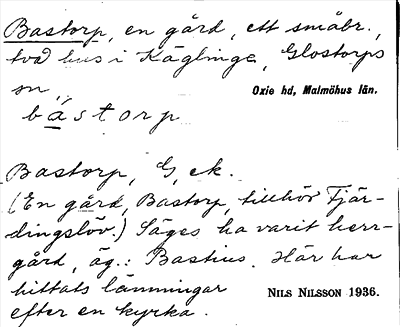 Bastorp, en gård, ett småbr.,
två hus i Käglinge, Glostorps
sn,
Oxie hd, Malmöhus län.
bàstorp
Bastorp, G, ek.
(En gård, Bastorp, tillhör Fjär-
dingslöv.) Säges ha varit herr-
gård, äg.: Bastius. Här har
hittats lämningar
efter en kyrka.
NILS NILSSON 1936.